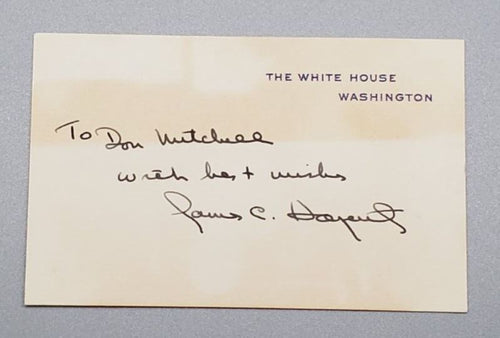 THE WHITE HOUSE
WASHINGTON
To Don Mitchell
with best wishes
James C. Hagerty